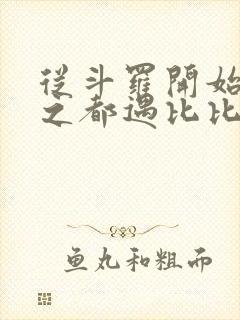 從斗羅開始
之都遇比比
鱼丸和粗面